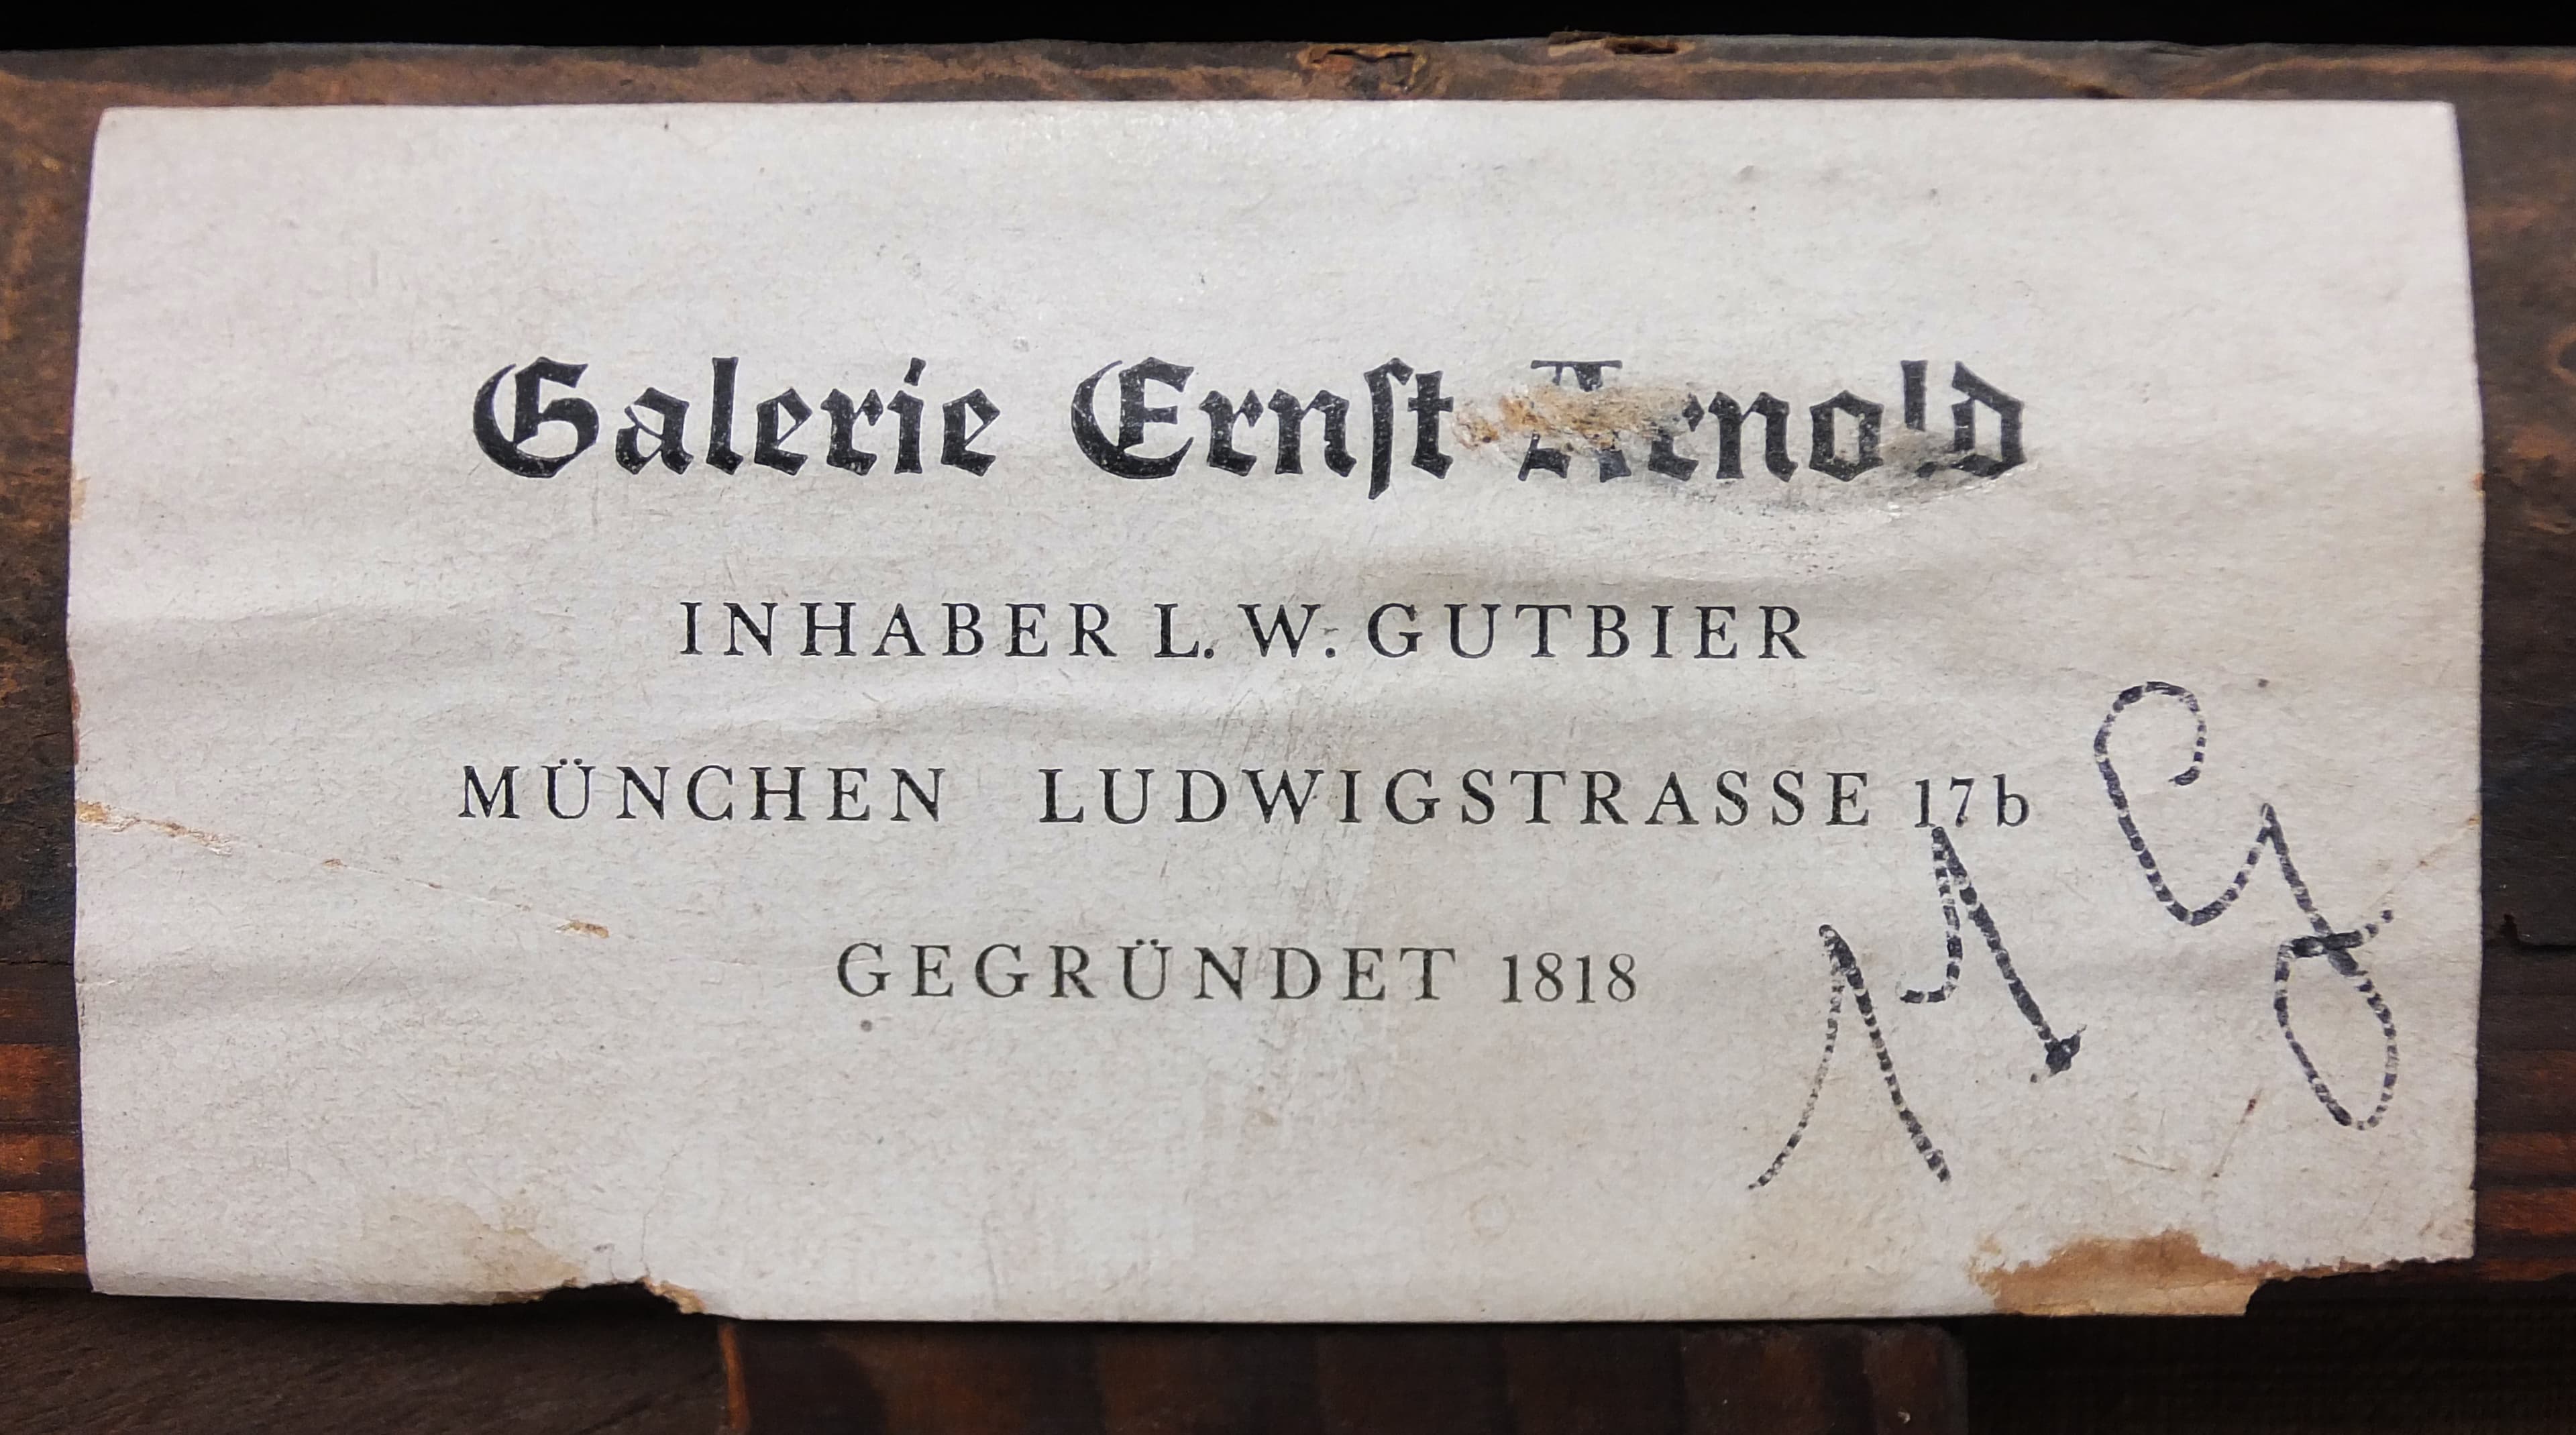 Galerie Ernst Arnold
INHABER L. W. GUTBIER
MÜNCHEN LUDWIGSTRASSE 17b
GEGRÜNDET 1818